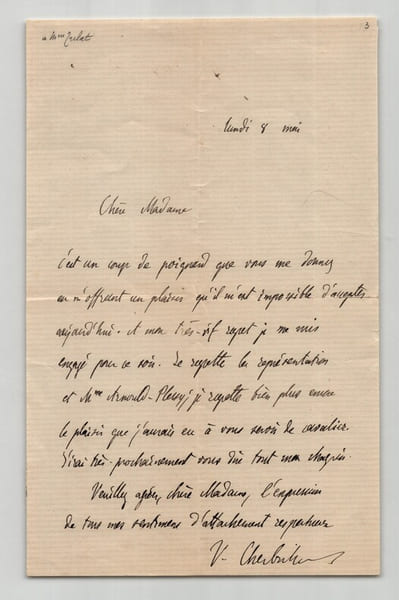 à Mme Trélat
3
lundi 8 mai
Chère Madame
c'est un coup de poignard que vous me donnez
en m'offrant un plaisir qu'il m'est impossible d'accepter
aujourd'hui. A mon très-vif regret je me suis
engagé pour ce soir. Je regrette la représentation
et Mme Arnould-Plessy; je regrette bien plus encore
le plaisir que j'aurais eu à vous servir de cavalier.
J'irai très-prochainement vous dire tout mon chagrin.
Veuillez agréer, chère Madame, l'expression
de tous mes sentimens d'attachement respectueux
V. Cherbuliez